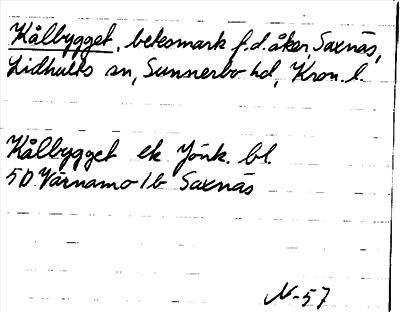 Kålbygget, betesmark f.d. åker, Saxnäs,
Lidhults sn, Sunnerbo hd, Kron. l.
Kålbygget ek Jönk. bl.
5D Värnamo 1b Saxnäs
N-57